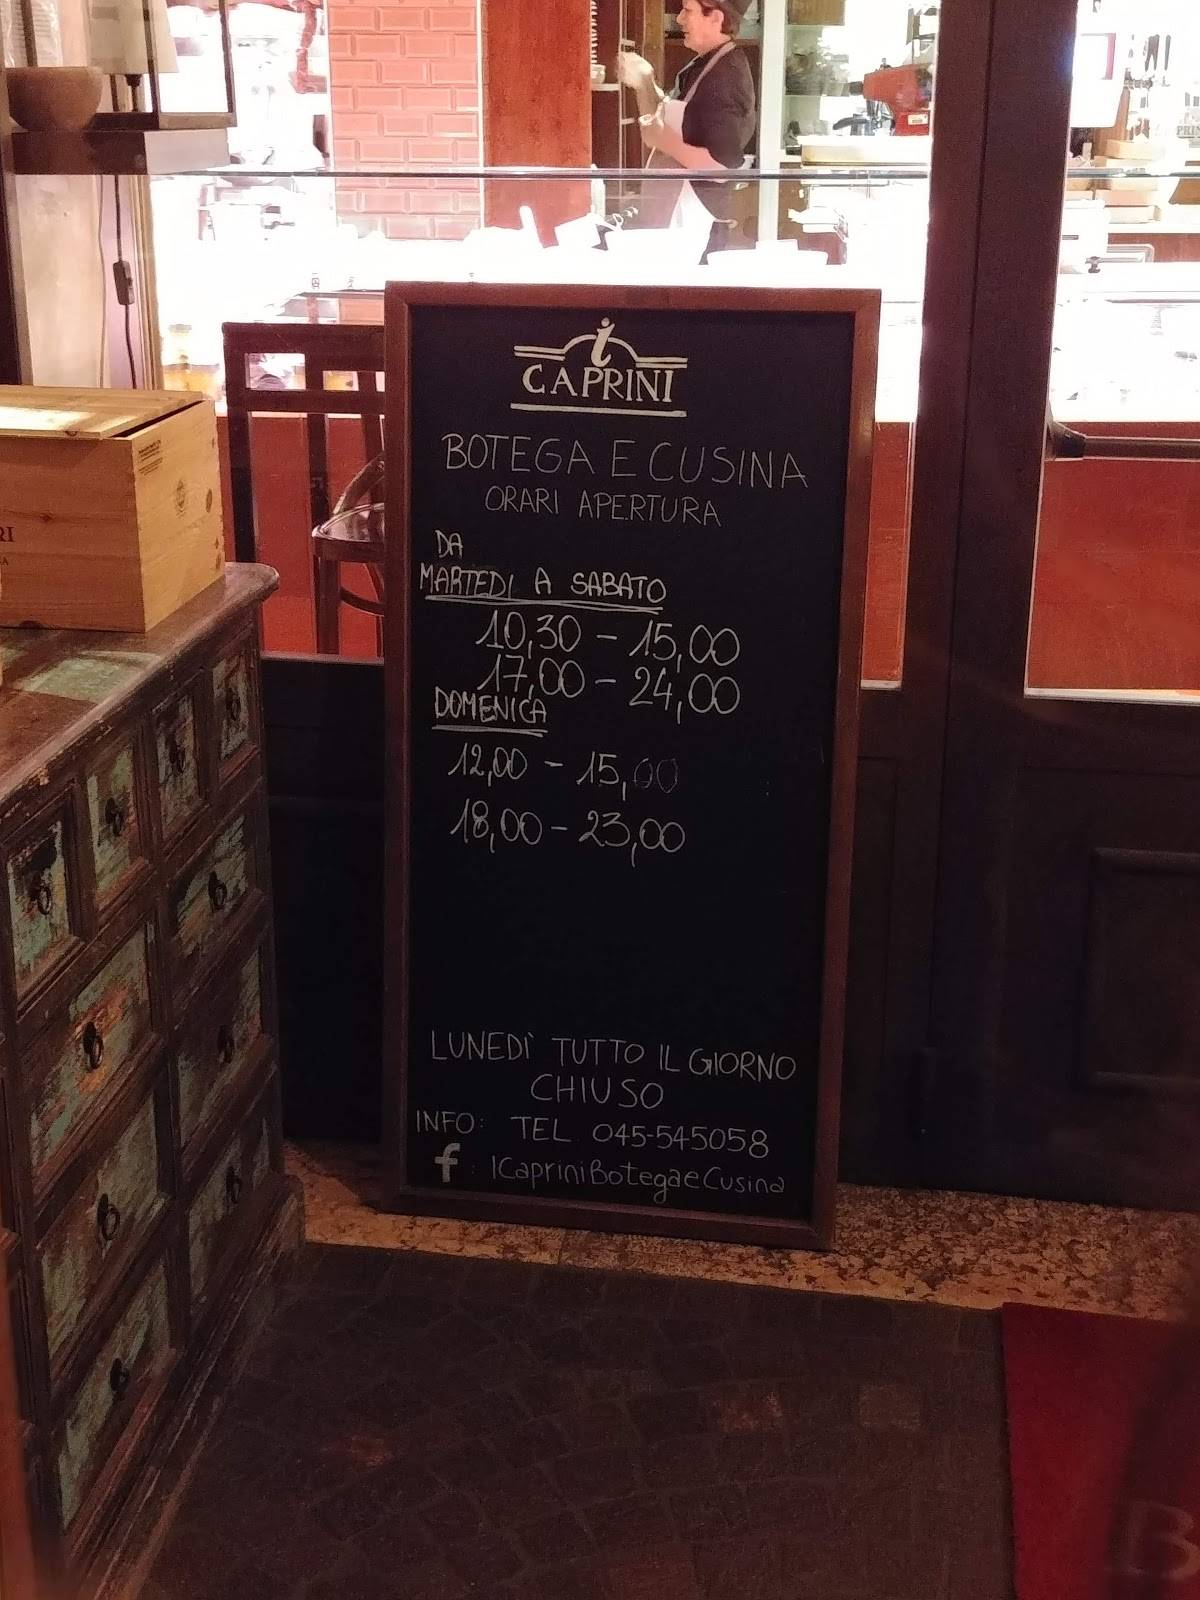 i
CAPRINI
BOTEGA E CUSINA
ORARI APERTURA
DA
MARTEDI A SABATO
10,30 - 15,00
17,00 - 24,00
DOMENICA
12,00 - 15,00
18,00 - 23,00
LUNEDÌ TUTTO IL GIORNO
CHIUSO
INFO: TEL 045-545058
f : ICapriniBotegaeCusina